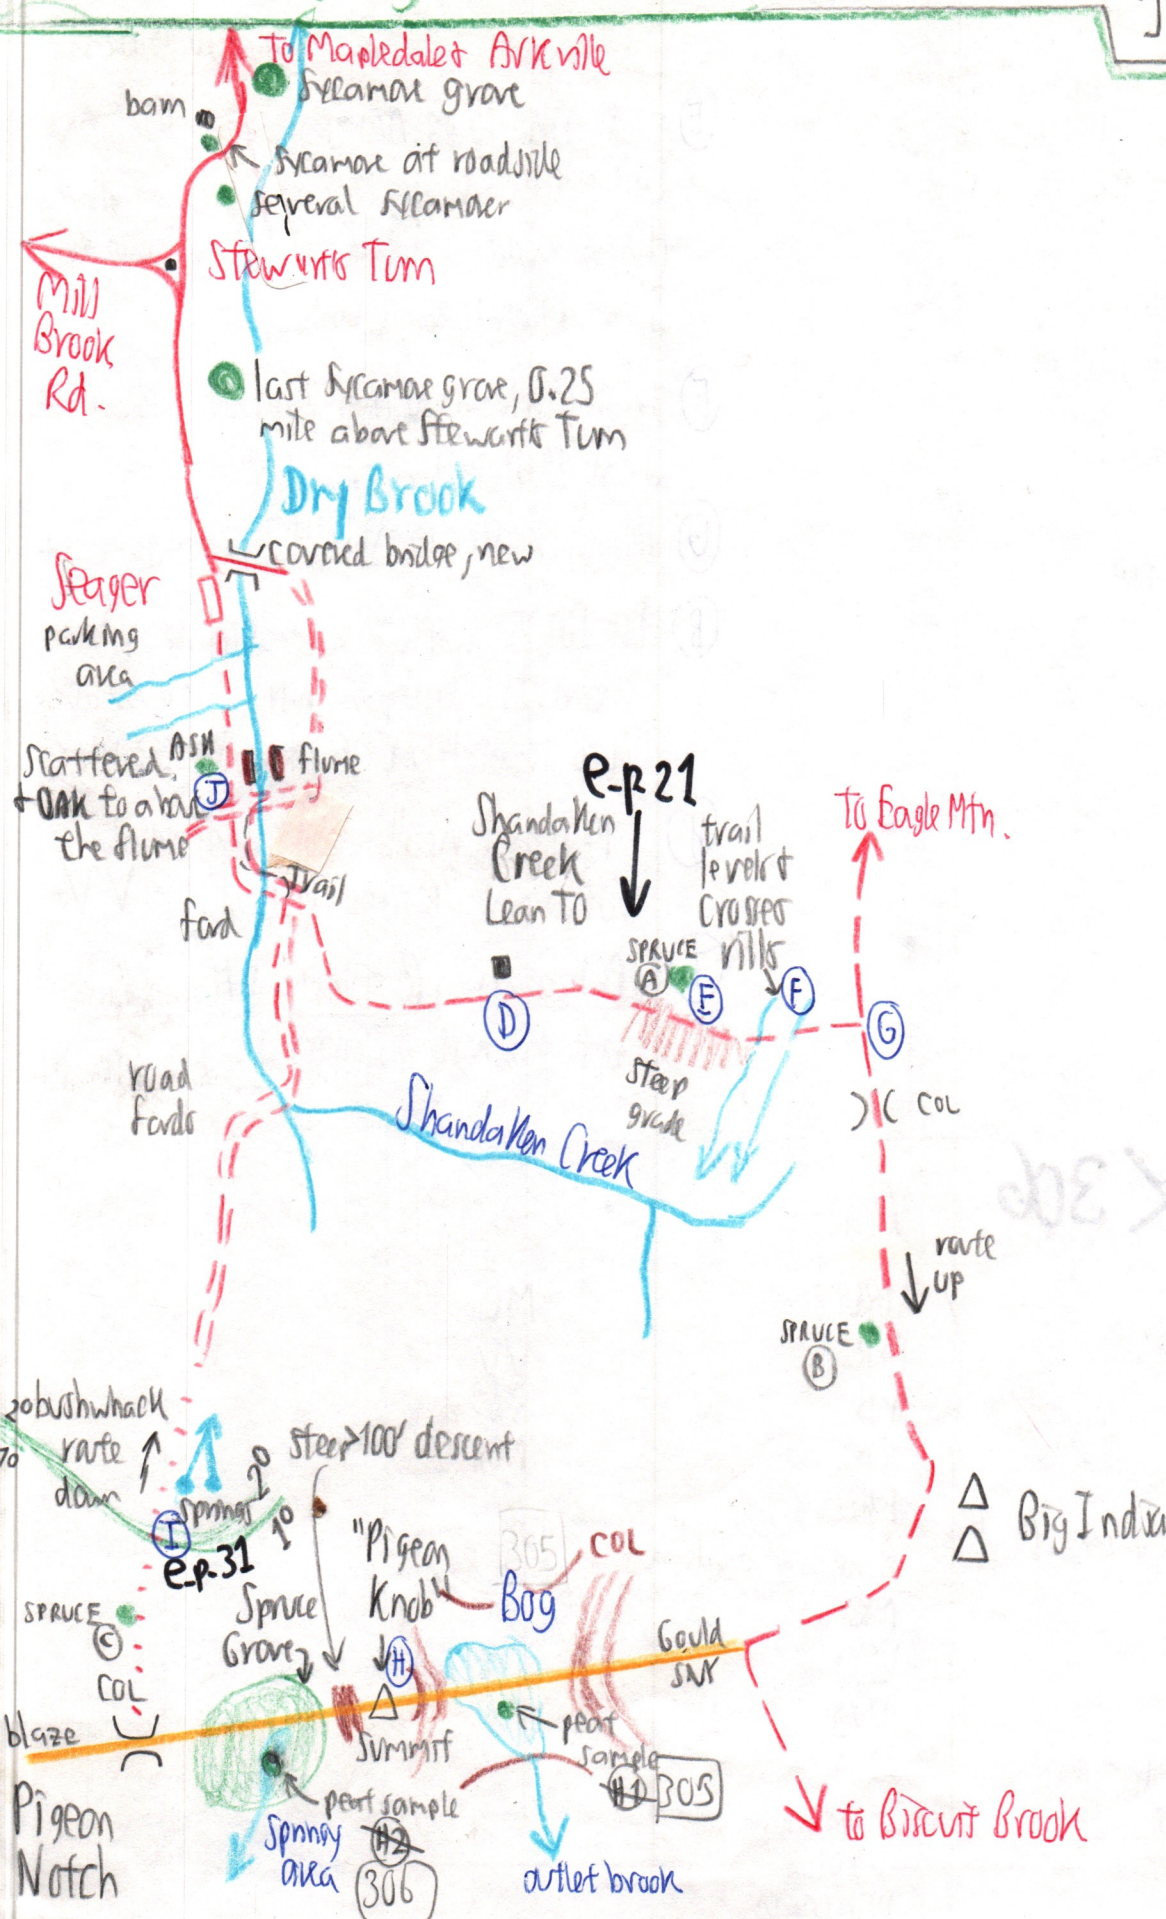 To Mapledale & Arkville
Sycamore grove
barn
Sycamore at roadside
several Sycamores
Stewarts Turn
Mill
Brook
Rd.
last Sycamore grove, 0.25
mile above Stewarts Turn
Dry Brook
covered bridge, new
Seager
parking
area
scattered ASH
+ OAK to about
the flume
J
flume
trail
ford
e-p.21
Shandaken
Creek
Lean TO
trail
levels &
crosses
rills
to Eagle Mtn.
SPRUCE
A
E
F
D
G
steep
grade
COL
road
fords
Shandaken Creek
route
up
SPRUCE
B
20
bushwhack
route
down
70
springs
2°
1°
steep >100' descent
I
e-p.31
"Pigeon
Knob"
305
COL
Bog
Big India
SPRUCE
C
COL
Spruce
Grove
H
Gould
blaze
summit
peat
sample
#1
305
Pigeon
Notch
peat sample
#2
306
Spring
area
outlet brook
to Biscuit Brook
<306